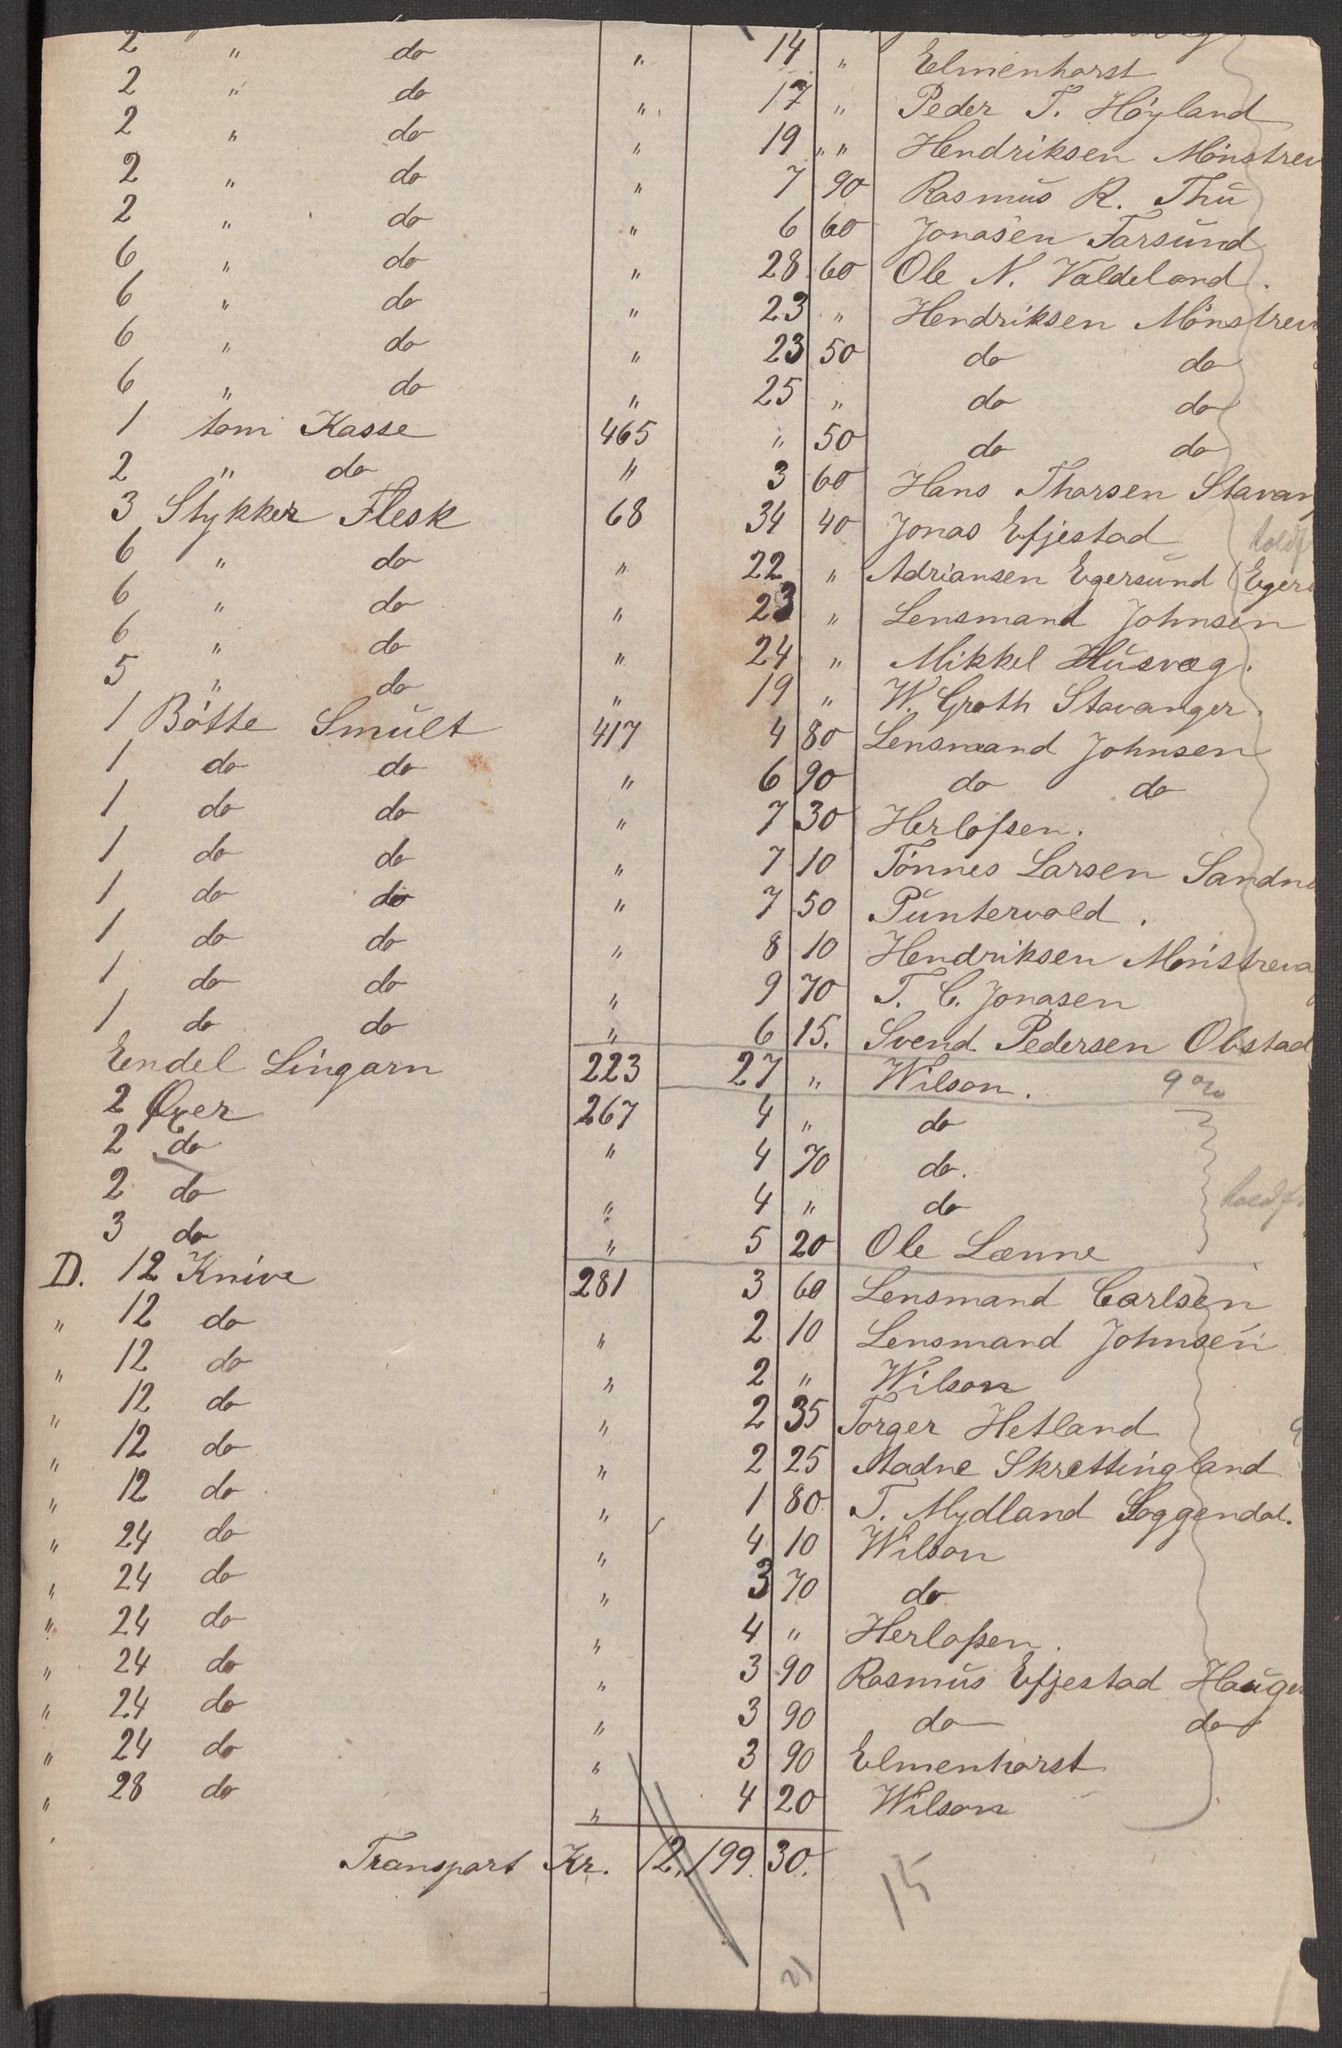 2 " do " 14 " Elmenhorst
2 " do " 17 " Peder T. Höyland
2 " do " 19 " " Hendriksen Mönstrev
2 " do " 7 90 Rasmus R. Thu
2 " do " 6 60 Jonasen Farsund
6 " do " 28 60 Ole N. Valdeland.
6 " do " 23 " Hendriksen Mönstrev
6 " do " 23 50 do do
6 " do " 25 " do do
1 tom Kasse 465 " 50 do do
2 " do " 3 60 Hans Thorsen Stavan
3 Stykker Flesk 68 34 40 Jonas Efjestad
6 " do " 22 " Adriansen Egersund (Eger
6 " do " 23 " Lensmand Johnsen
6 " do " 24 " Mikkel Husvæg.
5 " do " 19 " W. Groth Stavanger.
1 Bötte Smult 417 4 80 Lensmand Johnsen
1 do do " 6 90 do do
1 do do " 7 30 Herlofsen.
1 do do " 7 10 Tönnes Larsen Sandn
1 do do " 7 50 Puntervold.
1 do do " 8 10 Hendriksen Mönstreva
1 do do " 9 70 T. C. Jonasen
1 do do " 6 15. Svend Pedersen Obstad
Endel Lingarn 223 27 " Wilson.
2 Øxer 267 4 " do
2 do " 4 70 do.
2 do " 4 " do
3 do " 5 20 Ole Lænne
D. 12 Knive 281 3 60 Lensmand Carlsen
" 12 do " 2 10 Lensmand Johnsen
" 12 do " 2 " Wilson
" 12 do " 2 35 Torger Hetland
" 12 do " 2 25 Aadne Skrettingland
" 12 do " 1 80 T. Mydland Soggendal.
" 24 do " 4 10 Wilson
" 24 do " 3 70 do
" 24 do " 4 " Herlofsen.
" 24 do " 3 90 Rasmus Efjestad Hauge
" 24 do " 3 90 do do
" 24 do " 3 90 Elmenhorst
" 28 do " 4 20 Wilson
Transport Kr. 12,199. 30.
15
21